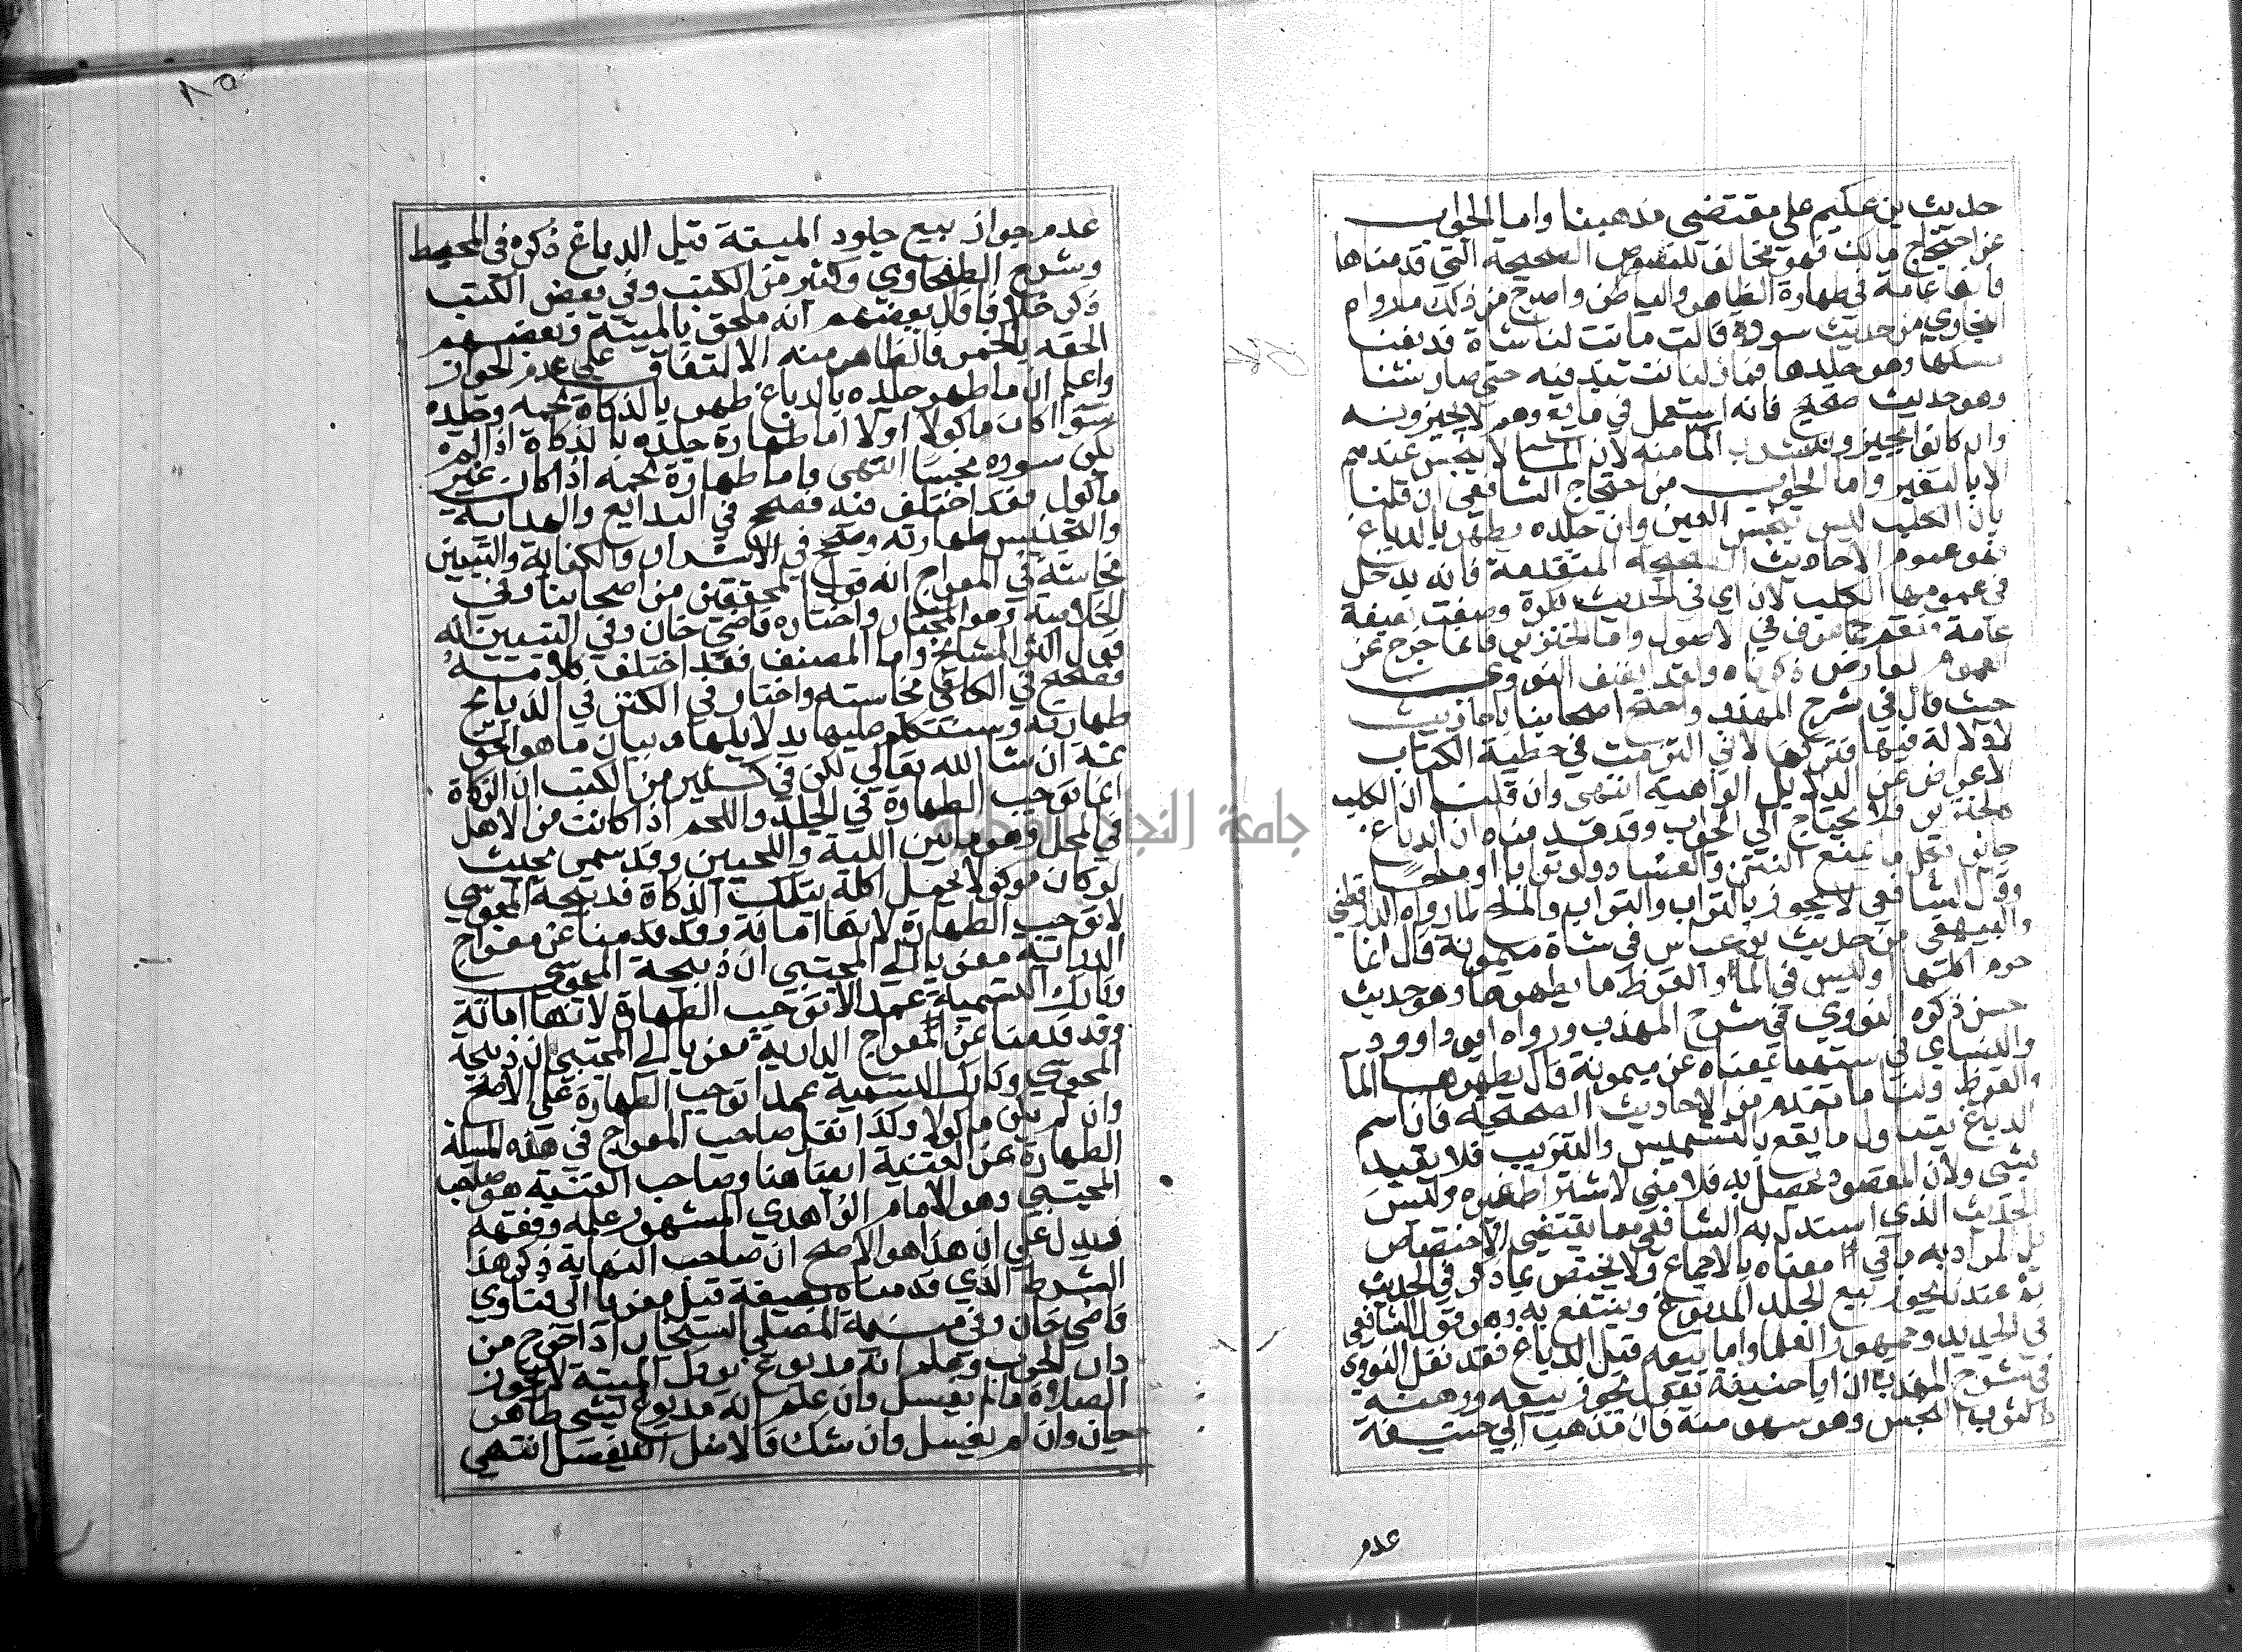 حديث بن عكيم على مقتضى مذهبنا واما الجواب
عن احتجاج مالك فهو مخالف للنصوص الصحيحة التي قدمناها
فانها عامة في طهارة الظاهر والباطن واصرح من ذلك ما رواه
البخاري من حديث سودة قالت ماتت لنا شاة فدبغنا
مسكها وهو جلدها فما زلنا ننتبذ فيه حتى صار شنا
وهو حديث صحيح فانه استعمل في مايع وهم لا يجيزونه
وان كانوا يجيزون شرب الما منه لان الما لا ينجس عندهم
الا بالتغير واما الجواب من احتجاج الشافعي ان قلنا
بان الكلب ليس بنجس العين وان جلده يطهر بالدباغ
فهو عموم الاحاديث الصحيحة المتقدمة فانه يدخل
في عمومها الكلب لان اي في الحديث نكرة وصفت بصفة
عامة فتعم كما عرف في الاصول واما الخنزير فانما خرج عن
العموم لعارض ذكرناه ولقد انصف النووي
حيث قال في شرح المهذب واحتج اصحابنا باحاديث
لا دلالة فيها فتركتها لاني التزمت في خطبة الكتاب
الاعراض عن الدلايل الواهية انتهى وان قلنا ان الكلب
كالخنزير فلا يحتاج الى الجواب وقد قدمناه ان الدباغ
جائز بكل ما يمنع النتن والفساد ولو ترابا او ملحا
وقال الشافعي لا يجوز بالتراب والتراب والملح لما رواه الدارقطني
والبيهقي من حديث بن عباس في شاة ميمونة قال انما
حرم اكلها اوليس في الما والقرظ ما يطهرها وهو حديث
حسن ذكره النووي في شرح المهذب ورواه ابو داوود
والنساي في سننهما بمعناه عن ميمونة قال يطهرها الما
والقرظ ولنا ما تقدم من الاحاديث الصحيحة فان اسم
الدباغ يتناول ما يقع بالتشميس والتتريب فلا يقيد
بشي ولان المقصود يحصل به فلا معنى لاشتراط غيره وليس
الحديث الذي استدل به الشافعي مما يقتضي الاختصاص
بل المراد به باقي معناه بالاجماع ولا يختص بما ذكر في الحديث
ثم عندنا يجوز بيع الجلد المدبوغ وينتفع به وهو قول الشافعي
في الجديد وجمهور العلما واما بيعه قبل الدباغ فقد نقل النووي
في شرح المهذب ان ابا حنيفة يقول يجوز بيعه ورهنه
كالثوب النجس وهو سهو منه فان مذهب ابي حنيفة
عدم
عدم جواز بيع جلود الميتة قبل الدباغ ذكره في المحيط
وشرح الطحاوي وكثير من الكتب وفي بعض الكتب
ذكر خلافا قال بعضهم انه ملحق بالميتة وبعضهم
الحقه بالخمر فالظاهر منه الاتفاق على عدم الجواز
واعلم ان ما طهر جلده بالدباغ طهر بالذكاة لحمه وجلده
سوا كان ماكولا اولا اما طهارة جلده بالذكاة اذا لم
يكن سوره نجسا انتهى واما طهارة لحمه اذا كان غير
ماكول فقد اختلف فيه فصحح في البدايع والهداية
والتجنيس طهارته وصحح في الاسرار والكفاية والتبيين
نجاسته في المعراج انه قول المحققين من اصحابنا وفي
الخلاصة وهو المختار واختاره قاضي خان وفي التبيين انه
قول اكثر المشايخ واما المصنف فقد اختلف كلامه
فصحح في الكافي نجاسته واختار في الكنز في الذبايح
طهارته وسنتكلم عليها بدلايلها وبيان ما هو الحق
ثمة ان شا الله تعالى لكن في كثير من الكتب ان الذكاة
انما توجب الطهارة في الجلد واللحم اذا كانت من الاهل
في المحل وهو ما بين اللبة واللحيين وقد سمى بحيث
لو كان موكولا يحل اكله بتلك الذكاة فذبيحة المجوسي
لا توجب الطهارة لانها اماتة وقد قدمنا عن معراج
الدراية معزيا الى المجتبى ان ذبيحة المجوسي
وتارك التسمية عمدا لا توجب الطهارة لانها اماتة
وقد قدمنا عن المعراج الدارية معزيا الى المجتبى ان ذبيحة
المجوسي وتارك التسمية عمدا توجب الطهارة على الاصح
وان لم يكن ماكولا وكذا نقل صاحب المعراج في هذه المسيلة
الطهارة عن القنية ايضا هنا وصاحب القنية هو صاحب
المجتبى وهو الامام الزاهدي المشهور علمه وفقهه
فيدل على ان هذا هو الاصح ان صاحب النهاية ذكر هذا
الشرط الذي قدمناه بصيغة قيل معزيا الى فتاوي
قاضي خان وفي منية المصلى السنجاب اذا اخرج من
دار الحرب وعلم انه مدبوغ بودك الميتة لا يجوز
الصلاة ما لم يغسل وان علم انه مدبوغ بشي طاهر
جاز وان لم يغسل وان شك فالافضل ان يغسل انتهى
جامعة النجاح الوطنية